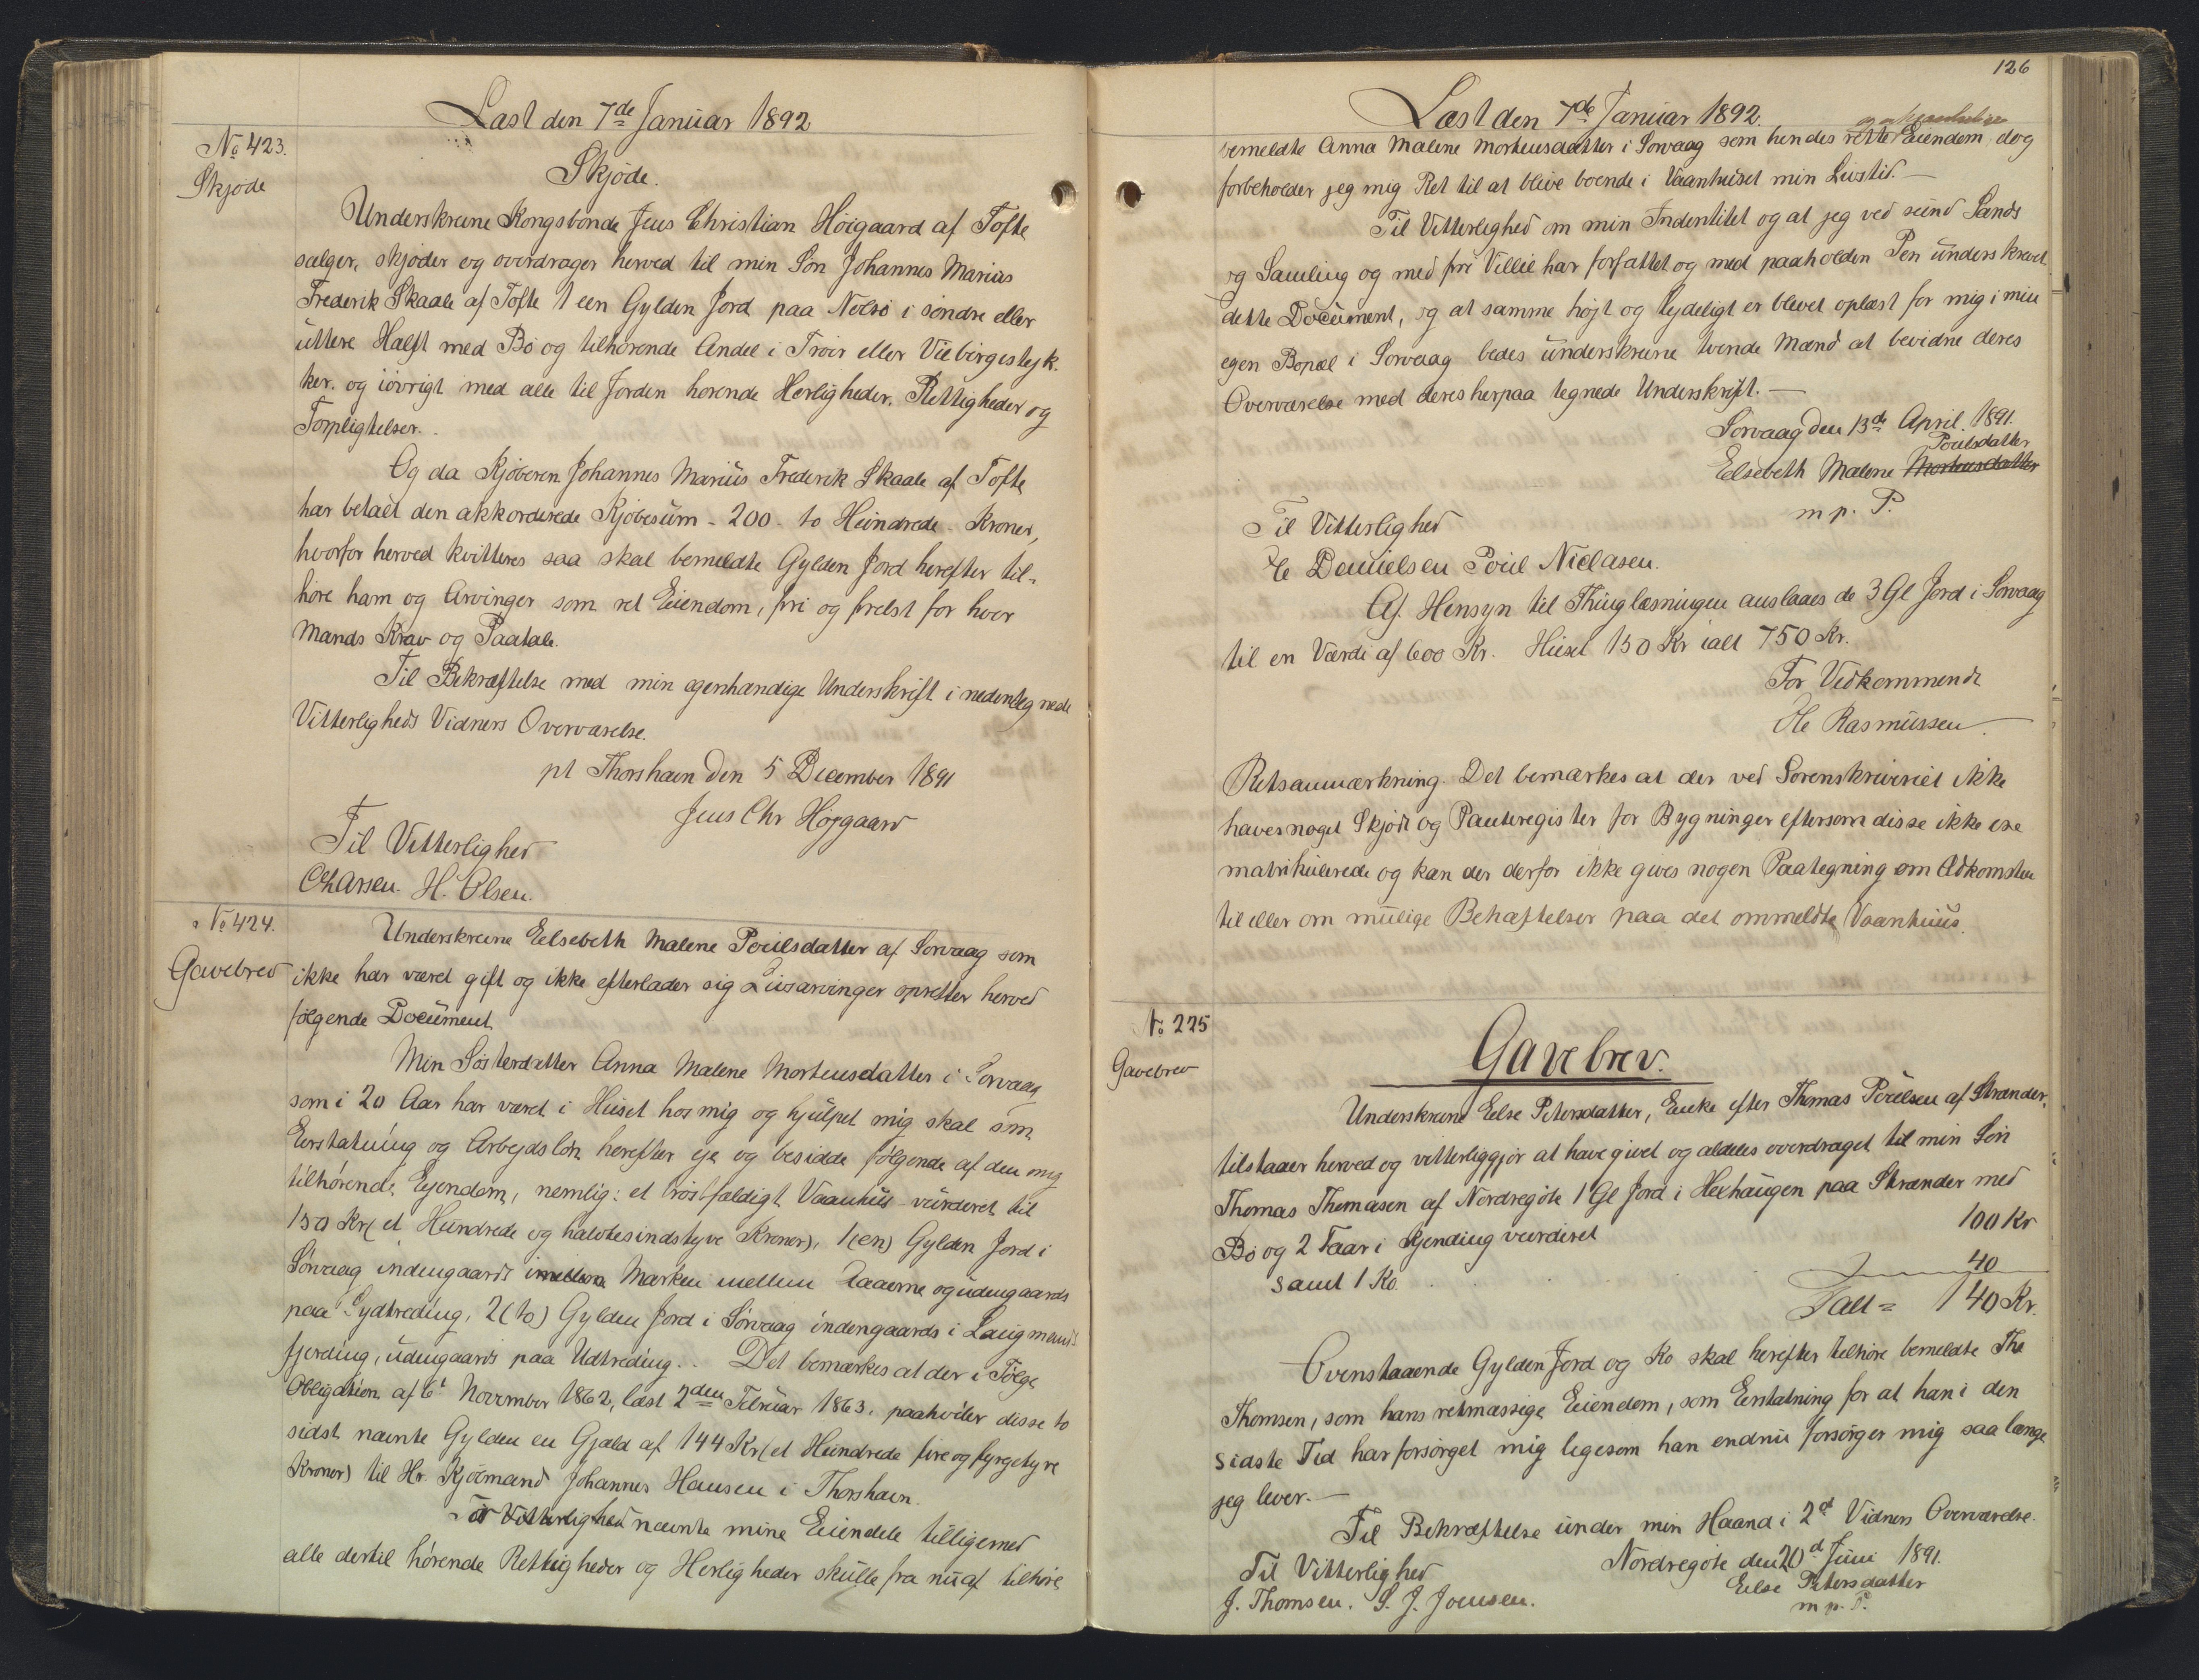 Læst den 7de Januar 1892
No 423.
Skjøde
Skjøde.
Underskrevne Kongsbonde Jens Christian Höigaard af Tofte
sælger, skjøder og overdrager herved til min Søn Johannes Marius
Frederik Skaale af Tofte 1 een Gylden Jord paa Nolsö i söndre eller
üttere Halft med Bö og tilhörende Andel i Tröir eller Viebirgestyk-
ker. og iövrigt med alle til Jorden hörende Herligheder, Rettigheder og
Forpligtelser.
Og da Kjöberen Johannes Marius Frederik Skaale af Tofte
har betalt den akkorderede Kjöbesum - 200 - to Hundrede - Kroner,
hvorfor herved kvitteres saa skal bemeldte Gylden Jord herefter til-
höre ham og Arvinger som ret Eiendom, fri og frelst for hver
Mands Krav og Paatale.
Til Bekræftelse med min egenhændige Underskrift i nedentegnede
Vitterligheds Vidners Overværelse.
pt Thorshavn den 5 December 1891
Jens Chr Höjgaard
Til Vitterlighed
H. Olsen.
No 424.
Gavebrev
Underskrevne Eelsebeth Malene Poulsdatter af Sorvaag som
ikke har været gift og ikke efterlader sig Livsarvinger opretter herved
følgende Document
Min Sösterdatter Anna Malene Mortensdatter i Sorvaag
som i 20 Aar har været i Huset hos mig og hjulpet mig skal som
Eerstatning og Arbejdslön herefter eje og besidde fölgende af den mig
tilhörende Ejendom, nemlig: et bröstfældigt Vaanhus vurderet til
150 Kr (et Hundrede og halvtesindstyve Kroner), 1 (en) Gylden Jord i
Sørvaag indengaards imellem Marken mellem Aaaerne og udengaards
paa Sydtreding, 2 (to) Gylden Jord i Sørvaag indengaards i Laugmands
fjerding, udengaards paa Udtreding. . Det bemærkes at der i Følge
Obligation af 6t November 1862, læst 2den Februar 1863. paahviler disse to
sidst nævnte Gylden en Gjæld af 144 Kr (et Hundrede fire og fyrgetyve
Kroner) til Hr. Kjöbmand Johannes Hansen i Thorshavn.
Vitterlighed nævnte mine Eiendele tilligemed
alle dertil hørende Rettigheder og Herligheder skulle fra nu af tilhøre
126
Læst den 7de Januar 1892.
bemeldte Anna Malene Mortensdatter i Sorvaag som hendes rette Eiendom, dog
forbeholder jeg mig Ret til at blive boende i Vaanhuset min Livstid. —
Til Vitterlighed om min Indentitet og at jeg ved sund Sands
og Samling og med fri Villie har forfattet og med paaholden Pen underskrevet
dette Document, og at samme højt og tydeligt er blevet oplæst for mig i min
egen Bopæl i Sorvaag bedes underskrevne tvende Mænd at bevidne deres
Overværelse med deres herpaa tegnede Underskrift. —
Sorvaag den 13de April. 1891.
Poulsdatter
Eelsebeth Malene Mortensdatter
m p. P.
Til Vitterlighed
Danielsen Poul Niclasen.
Af Hensyn til Thinglæsningen anslaaes de 3 Gl Jord i Sorvaag
til en Værdi af 600 Kr. Huset 150 Kr ialt 750 Kr.
For Vedkommende
Ole Rasmussen
Retsanmærkning. Det bemærkes at der ved Sorenskriveriet ikke
haves noget Skjöde og Panteregister for Bygninger eftersom disse ikke ere
matrikulerede og kan der derfor ikke gives nogen Paategning om Adkomsten
til eller om mulige Behæftelser paa det ommeldte Vaanhus.
No 225
Gavebrev
Gavebrev.
Underskrevne Eelse Petersdatter, Enke efter Thomas Poulsen af Strænder,
tilstaaer herved og vitterliggjör at have givet og aldeles overdraget til min Sön
Thomas Thomasen af Nordregöte 1 Gl Jord i Heehaugen paa Strænder med
Bö og 2 Faar i Kjending vurderet 100 Kr
samt 1 Ko . . . . 40
Ialt = 140 Kr.
Ovenstaaende Gylden Jord og Ko skal herefter tilhöre bemeldte Ths
Thomsen, som hans retmæssige Eiendom, som Eerstatning for at han i den
sidste Tid har forsörget mig ligesom han endnu forsörger mig saa længe
jeg lever. —
Til Bekræftelse under min Haand i 2d Vidners Overværelse.
Nordregöte den 20d Juni 1891.
Til Vitterlighed
Eelse Petersdatter
J. Thomsen. S. J. Joensen.
m p. P.